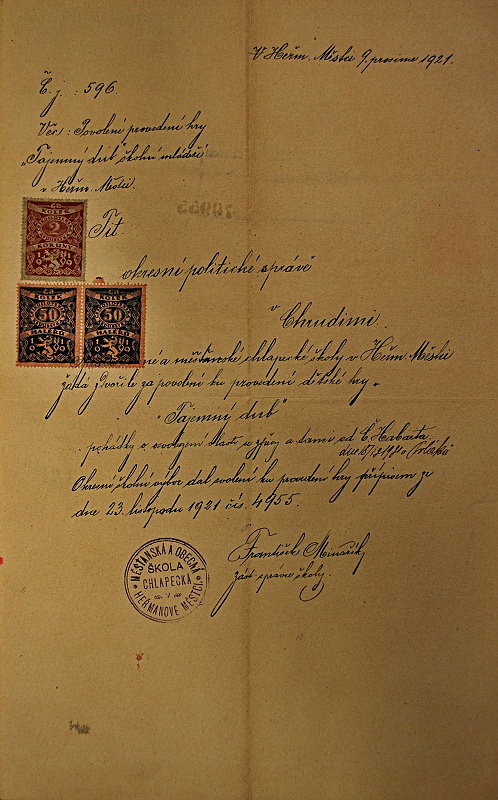 V Heřm. Městci 9. prosince 1921.
Č. j. : 596.
Věc: Povolení provedení hry
"Tajemný dub" školní mládeží
v Heřm. Městci.
ČS
KOLEK
2
KORUNY
1919
Tit.
okresní politické správě
v Chrudimi.
ČS KOLEK 50 HALÉŘŮ 1919
ČS KOLEK 50 HALÉŘŮ 1919
né a měšťanské chlapecké školy v Heřm. Městci
žádá zdvořile za povolení ku provedení dětské hry
"Tajemný dub"
pohádky o se zpěvy a tanci od Č. Habarta.
Okresní školní výbor dal svolení ku provedení hry přípisem ze
dne 23. listopadu 1921 čís. 4955.
František Minařík
zást. správce školy.
MĚŠŤANSKÁ A OBECNÁ
ŠKOLA
CHLAPECKÁ
V
HEŘMANOVĚ MĚSTCI